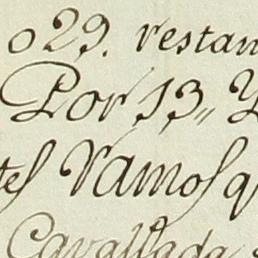 o 29. restan
Por 13,, Y
tes Vamos q
Cavallada